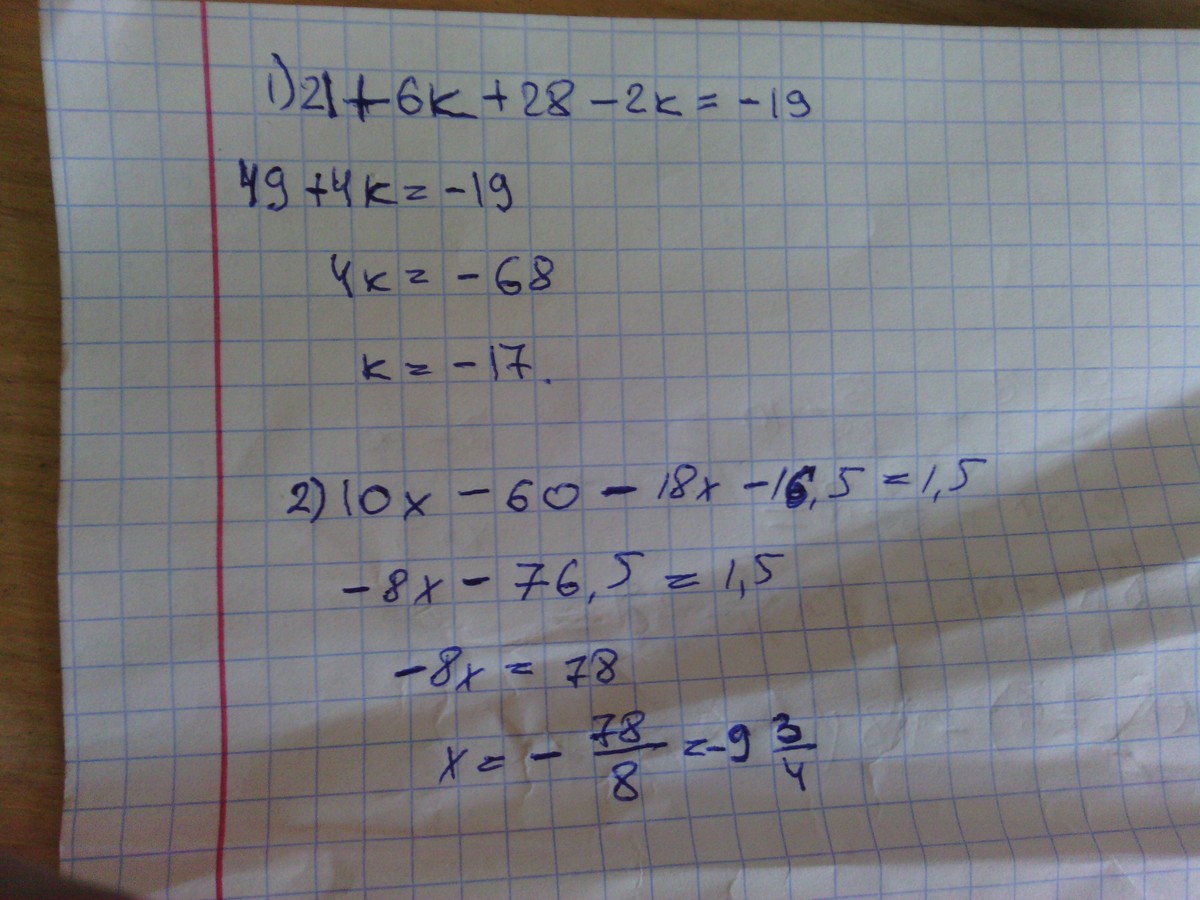 1) 21+6к+28-2к=-19
49+4к=-19
4к=-68
к=-17.
2) 10x-60-18x-16,5=1,5
-8x-76,5=1,5
-8x=78
x=-78/8=-9 3/4